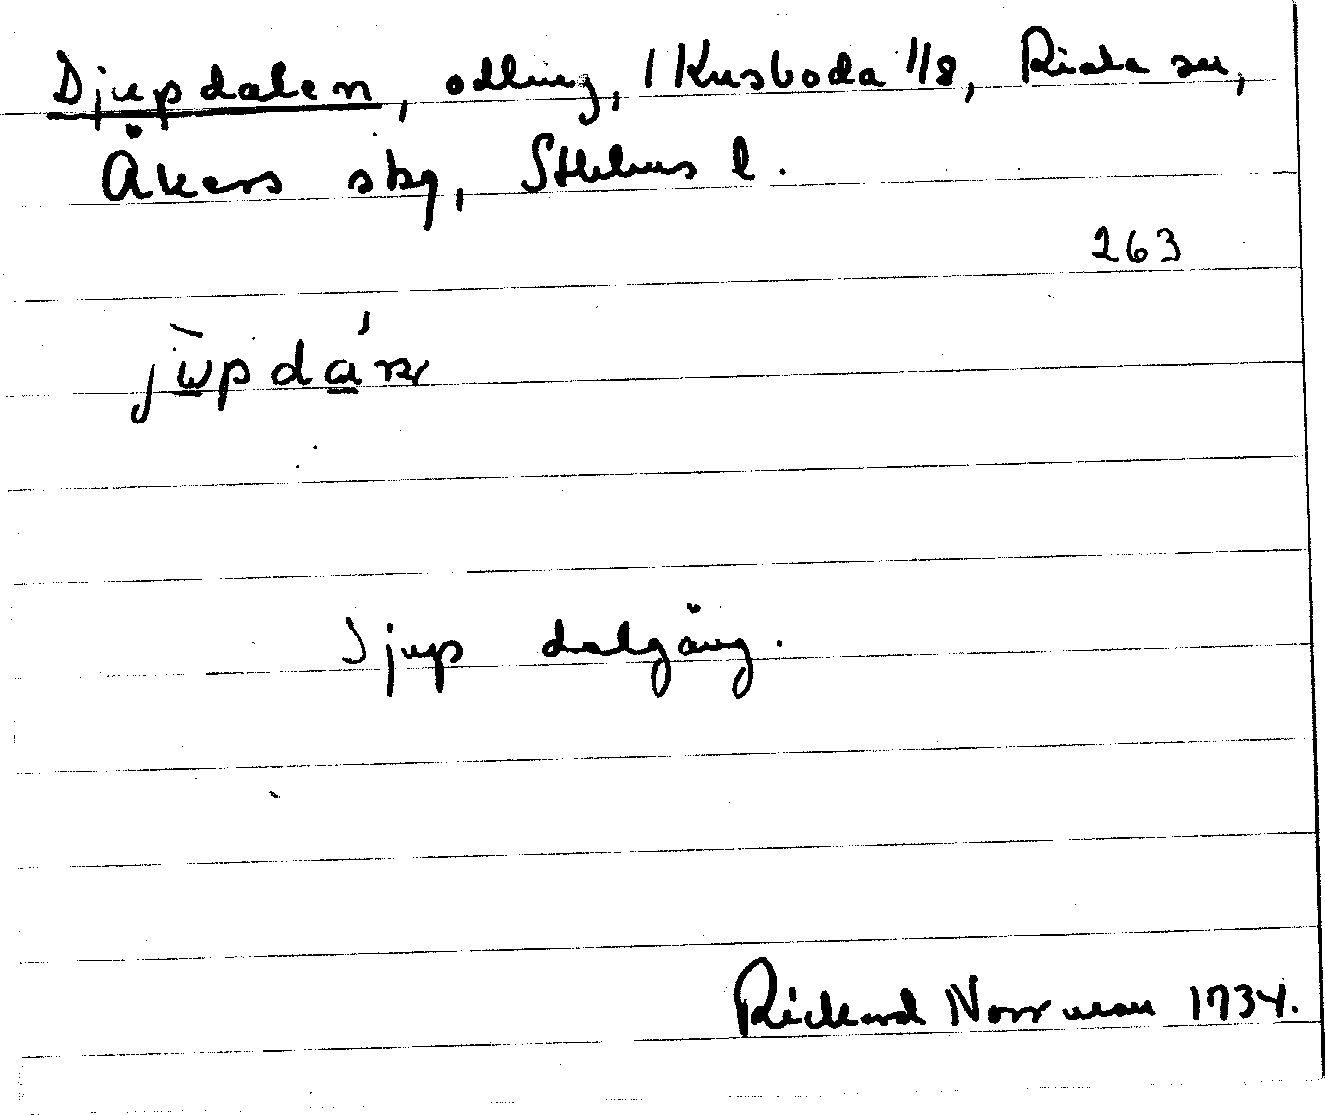 Djupdalen, odling, i Kusboda 1/8, Riala sn,
Åkers skg, Sthlms l.
263
Djup dalgång.
Rickard Norrman 1934.